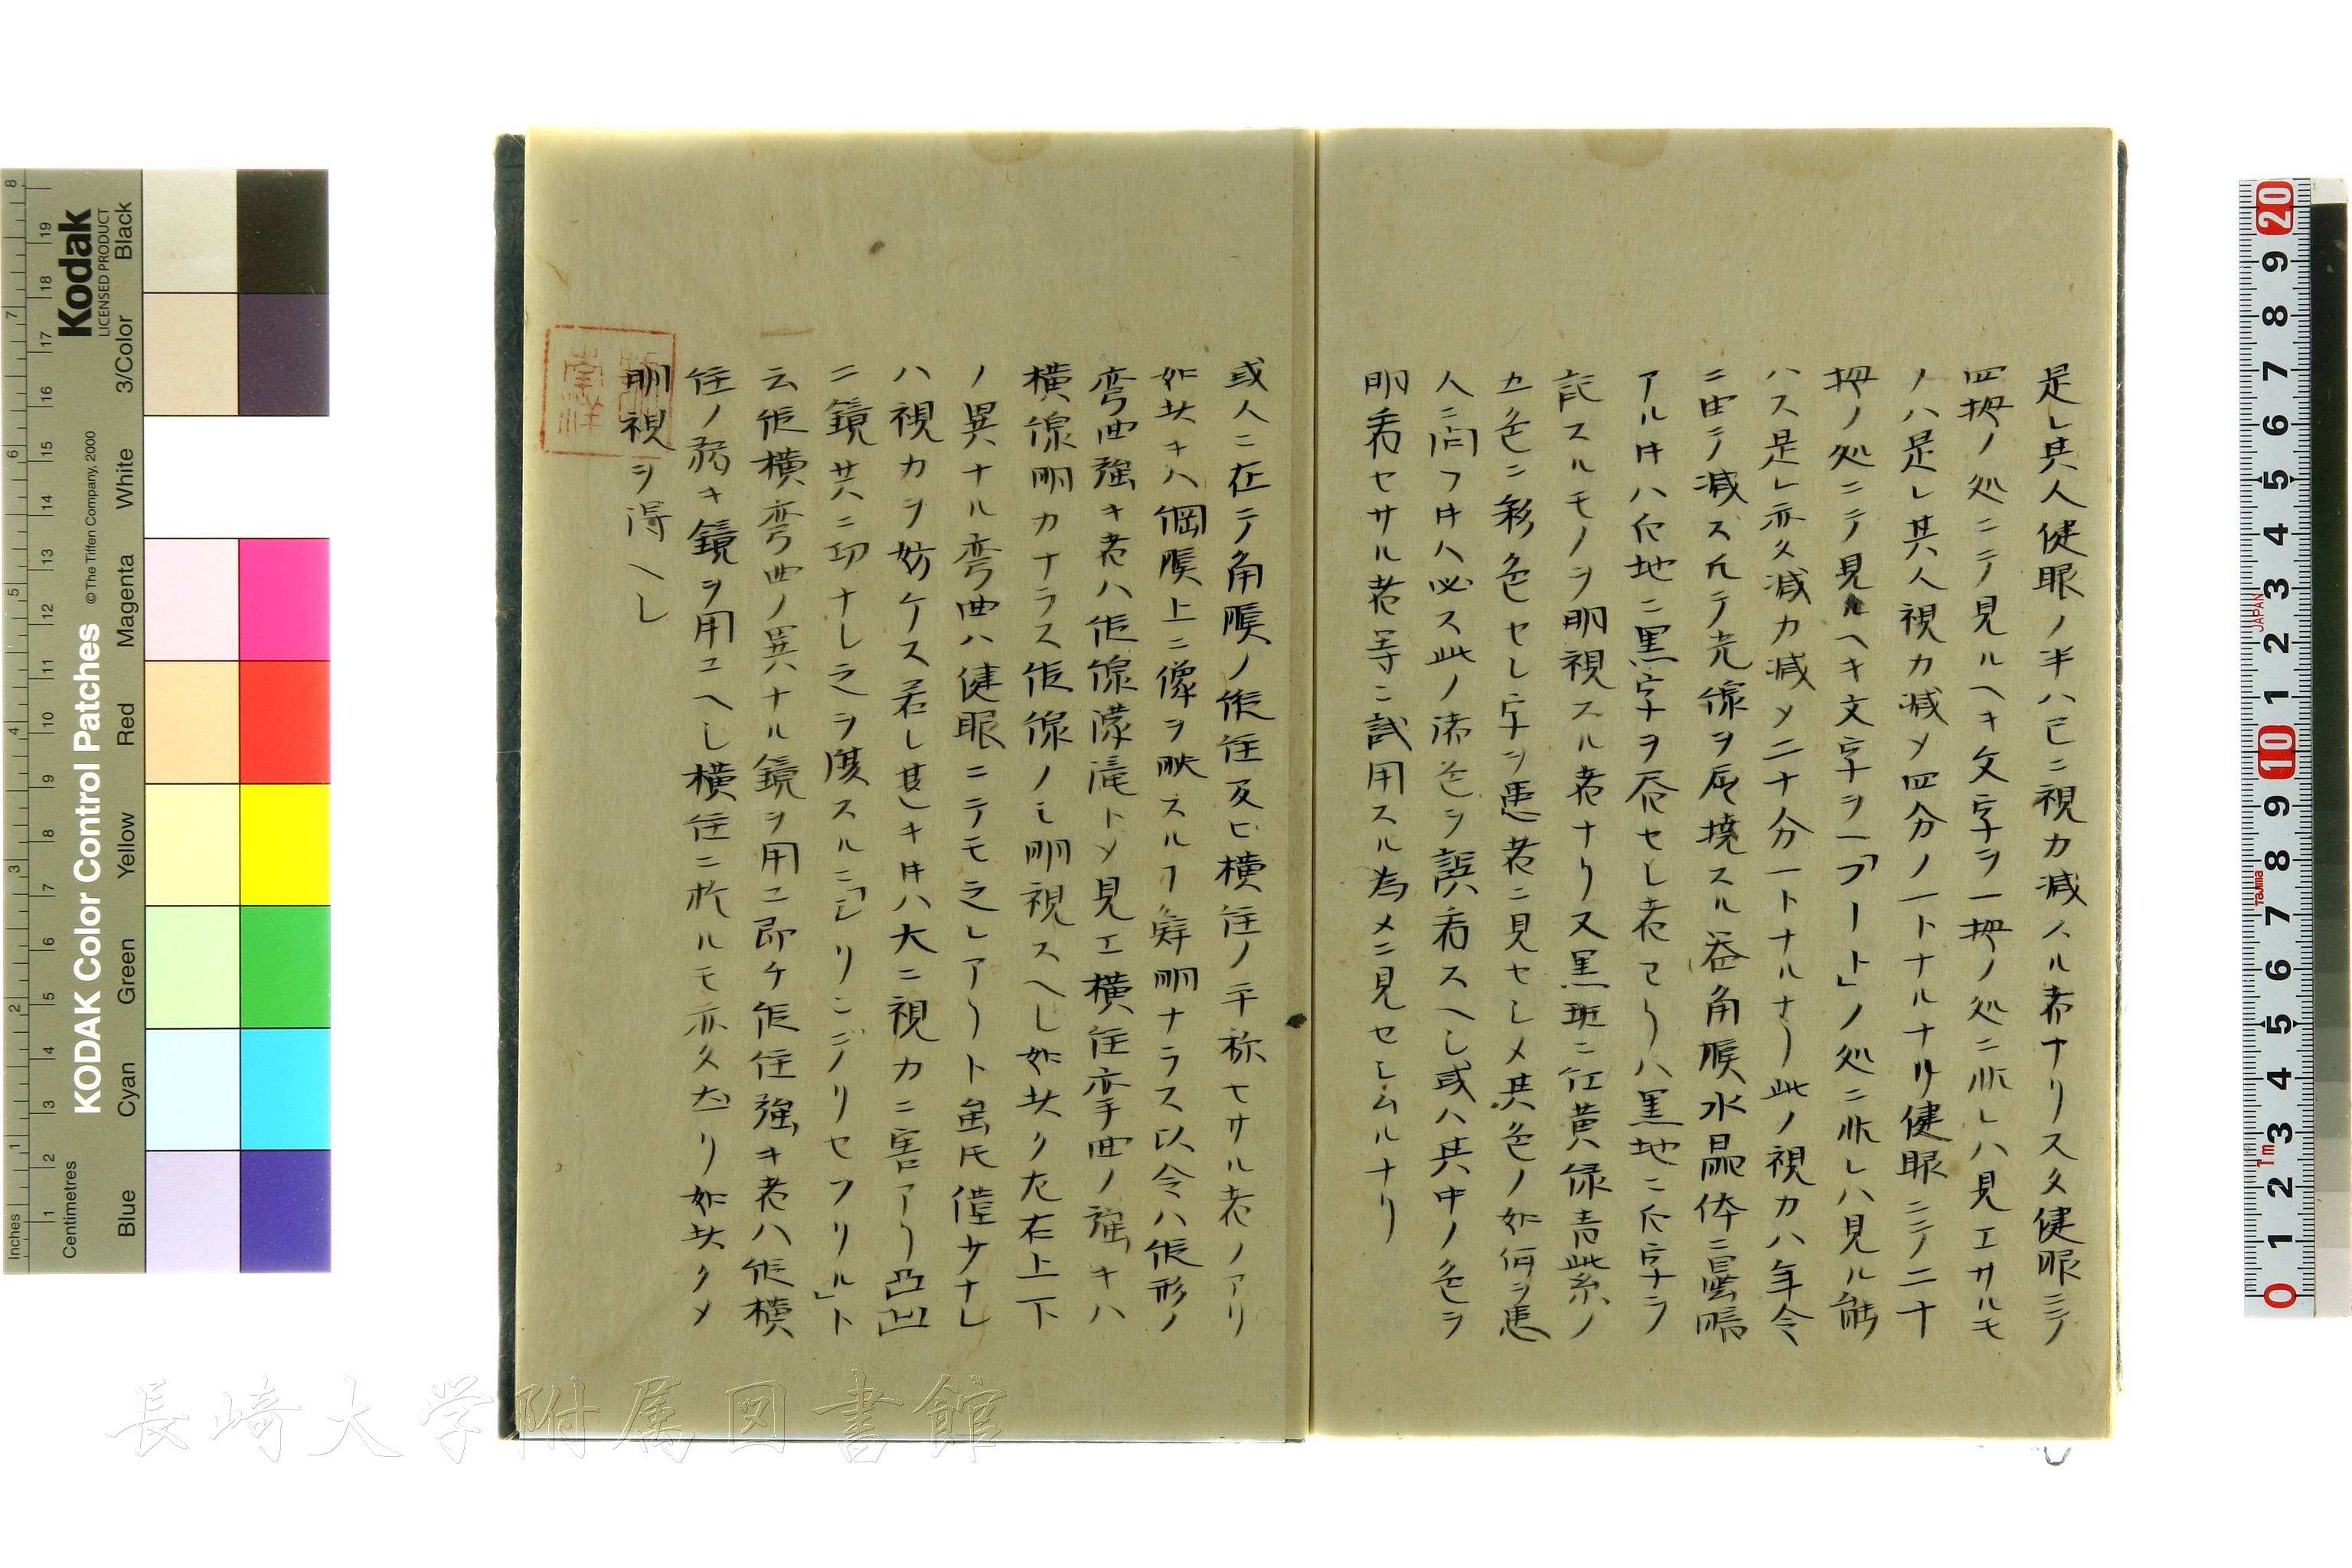 足レ其人健眼ノ半ハ已ニ視力減スル者ナリ又タ健眼ニテ
四掷ノ処ニテ見ルヘキ文字ヲ一掷ノ処ニ非レハ見エサルモ
ノハ足レ其人視力減メ四分ノ一トナルナリ健眼ニテ二十
掷ノ処ニテ見ルヘキ文字ヲ一「フート」ノ処ニ非レハ見ル能
ハス是レ亦タ減力減メ二十分一トナルナリ此ノ視力ハ年令
ニ由テ減ス凡テ光線ヲ屈撓スル器角膜水晶体ニ曇暗
アル𪜈ハ白地ニ黒字ヲ記セし者ヨリハ黒地ニ白字ヲ
記スルモノヲ明視スル者ナリ又黒斑ニ紅黄緑青紫ノ
五色ニ彩色セし字ヲ患者ニ見セしメ其色ノ如何ヲ患
人ニ問フ𪜈ハ必ス此ノ諸色ヲ誤看スヘし或ハ其中ノ色ヲ
明看セサル者等ニ試用スル為メニ見セしムルナリ
或人ニ在テ角膜ノ縦径及ヒ横径ノ平称セサル者ノアリ
如此キハ網膜上ニ像ヲ映スルヿ鮮明ナラス以令ハ縦形ノ
弯曲強キ者ハ縦線濛滝トメ見エ横径弯曲ノ強キハ
横線明カナラス縦線ノミ明視スヘし如此ク左右上下
ノ異ナル弯曲ハ健眼ニテモ之レアリト虽𪜈僅サナレ
ハ視力ヲ妨ケス若し甚キ𪜈ハ大ニ視力ニ害アリ凸凹
ニ鏡共ニ功ナし之ヲ療スルニ「シリンデリセフリル」ト
云縦横弯曲ノ異ナル鏡ヲ用ユ即チ縦径強キ者ハ縦横
径ノ弱キ鏡ヲ用ユヘし横径ニ於ルモ亦タ然リ如此クメ
明視ヲ得ヘし
KODAK Color Control Patches
© The Tiffen Company, 2000
Kodak
LICENSED PRODUCT
Inches
Centimetres
Blue
Cyan
Green
Yellow
Red
Magenta
White
3/Color
Black
JAPAN
Tajima
1m
長崎大学附属図書館